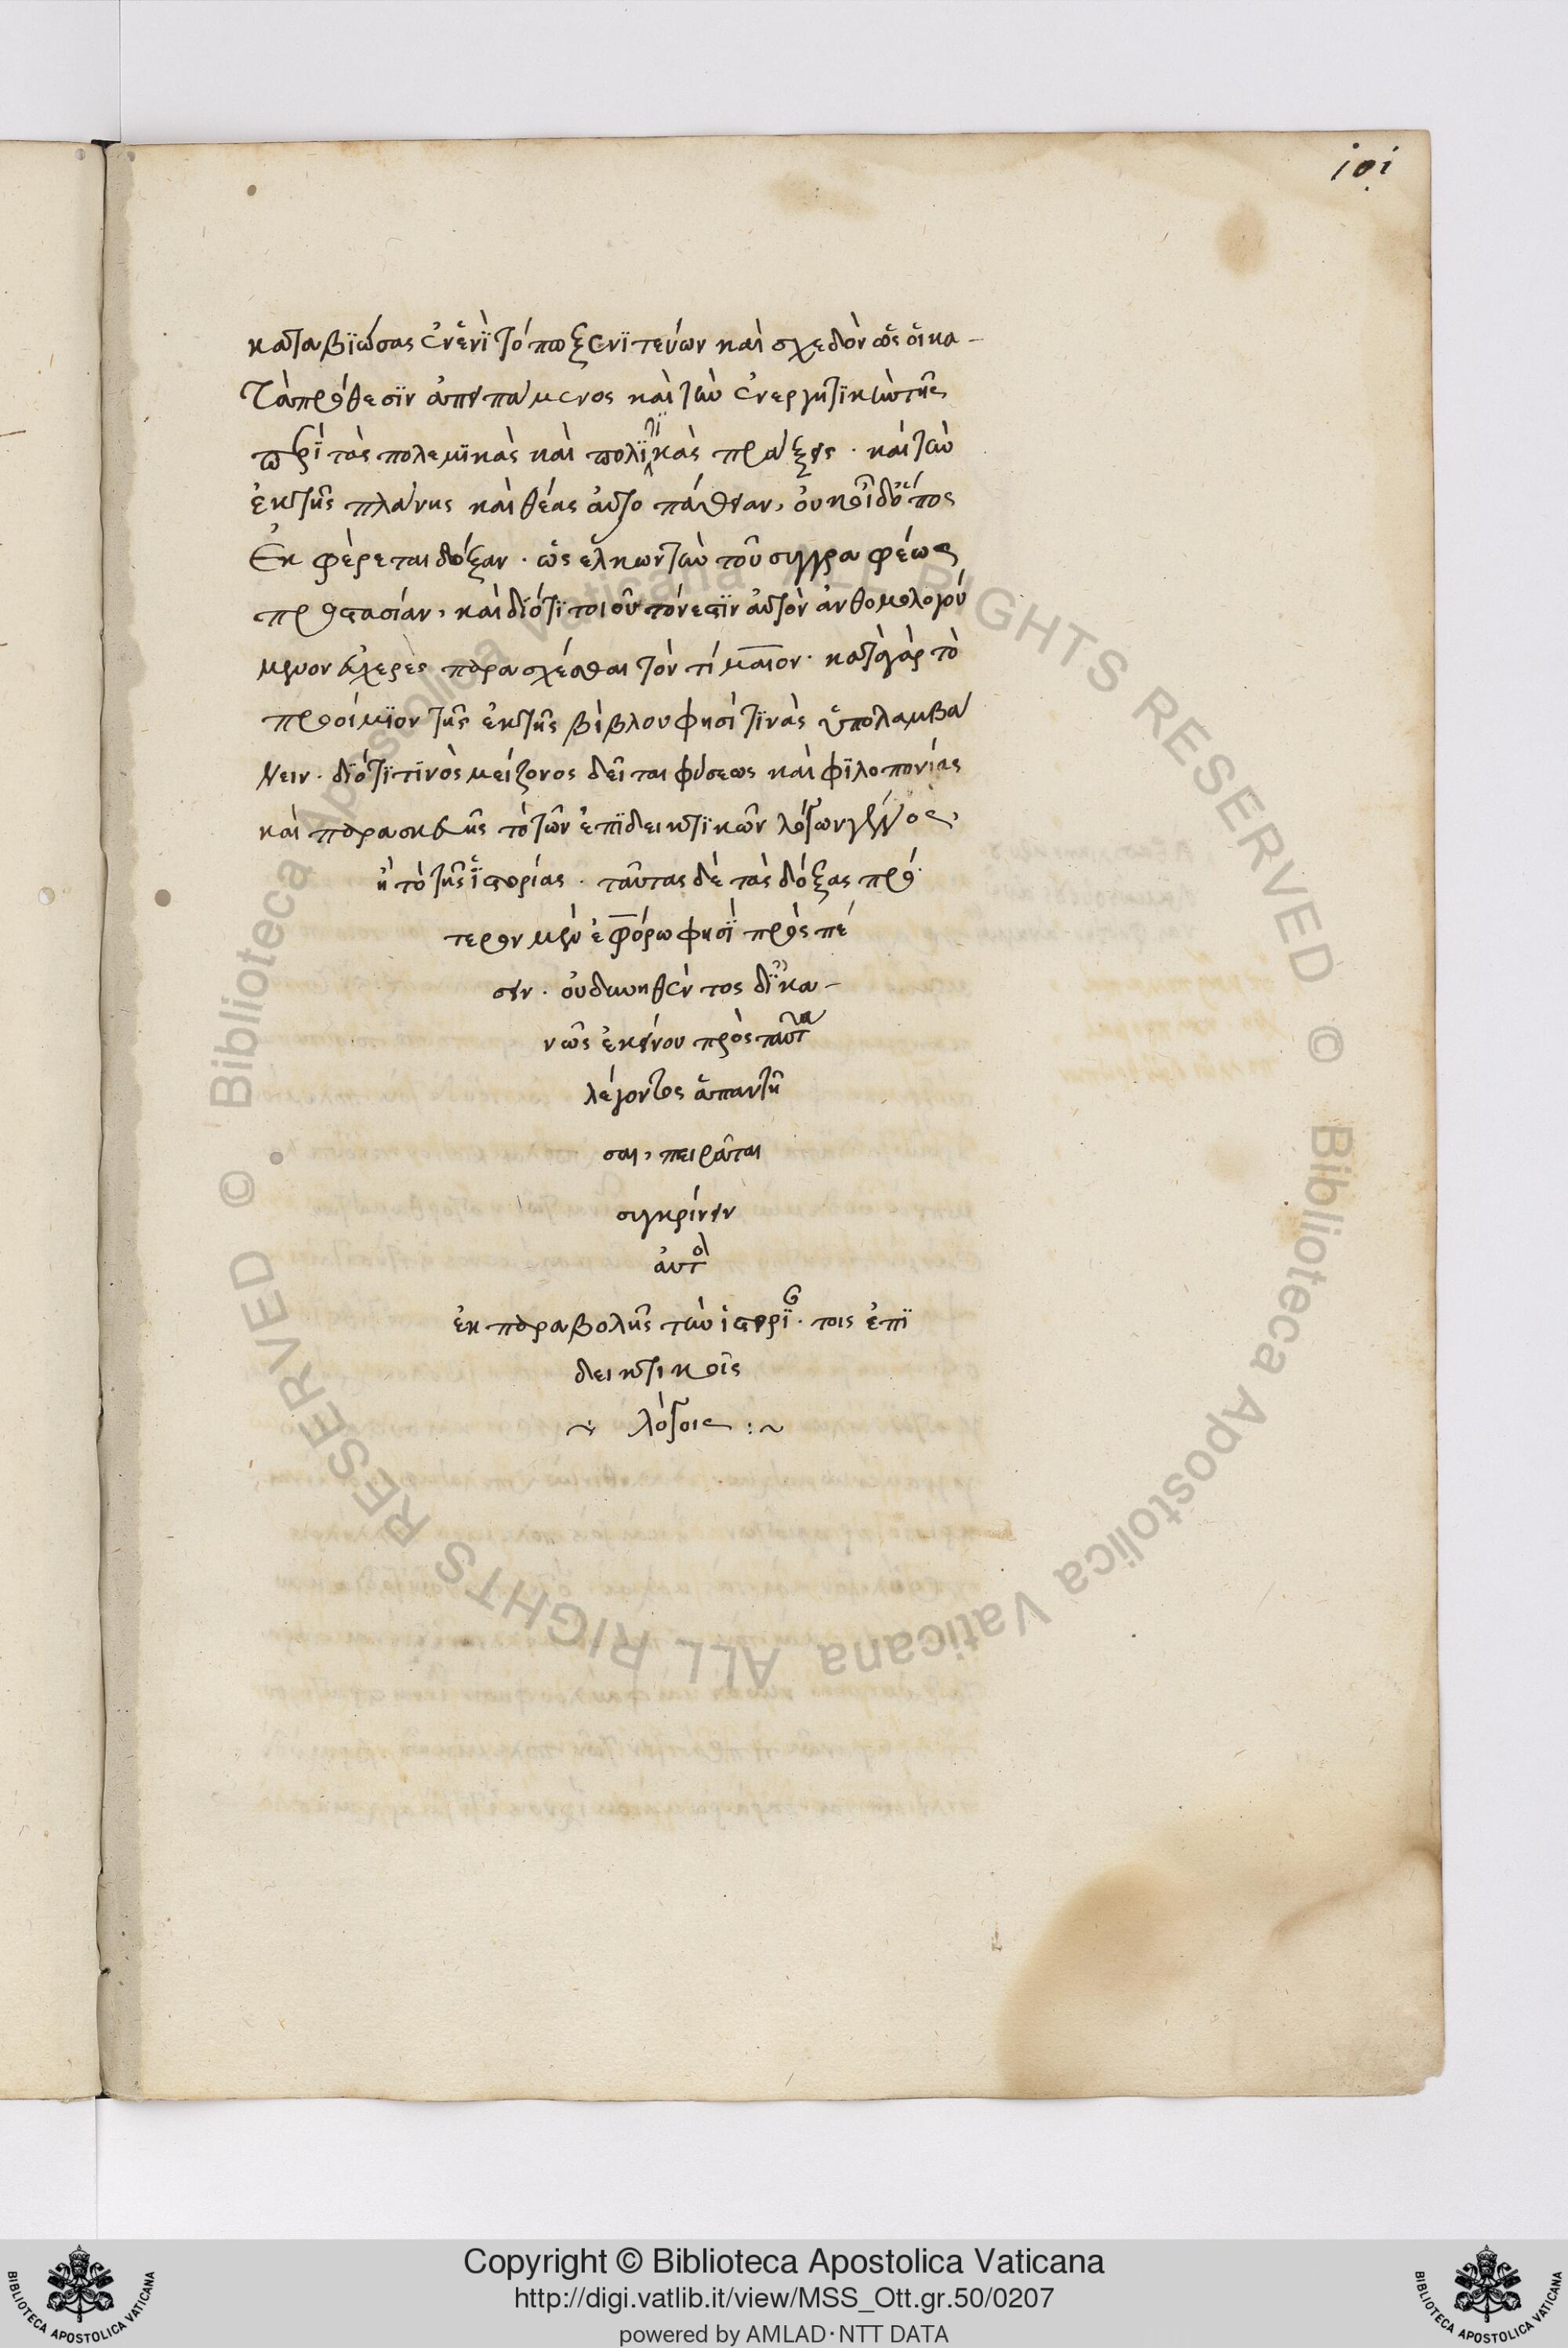 101
καταβϊώσας ἐνἑνὶ τόπω ξενϊτεύων καὶ σχεδὸν ὡς οἱ κα-
τὰπρόθεσϊν ἀπειπάμενος καὶ τὴν ἐνεργητϊκὼτης
περϊ τὰς πολεμϊκὰς καὶ πολϊτϊκὰς πράξεις · καὶ τὴν
ἐκτῆς πλάνης καὶ θέας αὐτοπάθειαν, οὐκ οἶδ' ὅπως
Ἐκφέρεται δόξαν · ὡς ἕλκων τὴν τοῦ συγγραφέως
προστασίαν, καὶ διότϊ τοιοῦτόν ἐστϊν αὐτὸν ἀνθομολογού
μενον εὐχερὲς παρασχέσθαι τὸν τίμαιον · κατὰγὰρ τὸ
προοίμϊον τῆς ἐκτῆς βίβλου φησί τϊνὰς ὑπολαμβά
νειν · διότϊ τϊνὸς μείζονος δεῖται φύσεως καὶ φϊλοπονίας
καὶ παρασκευῆς τὸ τῶν ἐπϊδεικτϊκῶν λόγων γένος,
ἢ τὸ τῆς ἱστορίας · ταύτας δὲ τὰς δόξας πρό
τερον μὲν ἐφόρω φησὶ προσπέ
σειν · οὐδυνηθέντος δ' ἱκα-
νῶς ἐκείνου πρὸς ταῦτα
λέγοντος ἀπαντῆ
σαι, πειρᾶται
συγκρίνειν
αὐτὸ
ἐκ παραβολῆς τὴν ἱστορί · τοις ἐπϊ
δεικτικοῖς
λόγοις :~
Copyright © Biblioteca Apostolica Vaticana
http://digi.vatlib.it/view/MSS_Ott.gr.50/0207
powered by AMLAD·NTT DATA
© Biblioteca Apostolica Vaticana ALL RIGHTS RESERVED
© Biblioteca Apostolica Vaticana ALL RIGHTS RESERVED
BIBLIOTECA APOSTOLICA VATICANA
BIBLIOTECA APOSTOLICA VATICANA